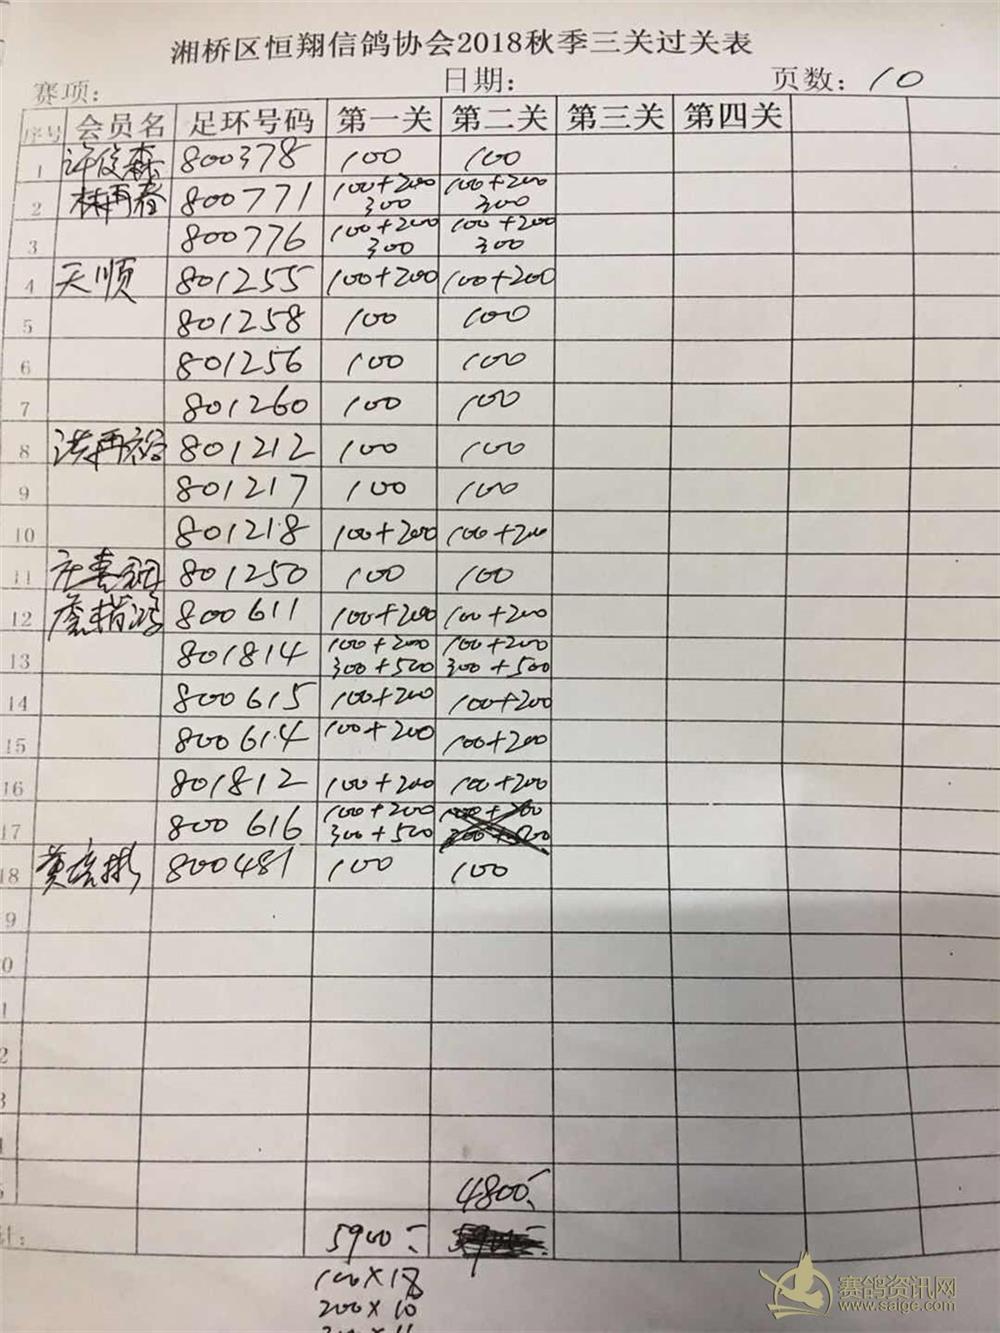 湘桥区恒翔信鸽协会2018秋季三关过关表
赛项: 日期: 页数: 10
序号 会员名 足环号码 第一关 第二关 第三关 第四关
1 许俊森 800378 100 100
2 林再春 800771 100+200 300 100+200 300
3 800776 100+200 300 100+200 300
4 天顺 801255 100+200 100+200
5 801258 100 100
6 801256 100 100
7 801260 100 100
8 洪再裕 801212 100 100
9 801217 100 100
10 801218 100+200 100+200
11 801250 100 100
12 800611 100+200 100+200
13 801814 100+200 300+500 100+200 300+500
14 800615 100+200 100+200
15 800614 100+200 100+200
16 801812 100+200 100+200
17 800616 100+200 300+500
18 黄培彬 800481 100 100
9
0
1
2
3
4800
计: 5900
100×18
200×10
赛鸽资讯网
www.saige.com